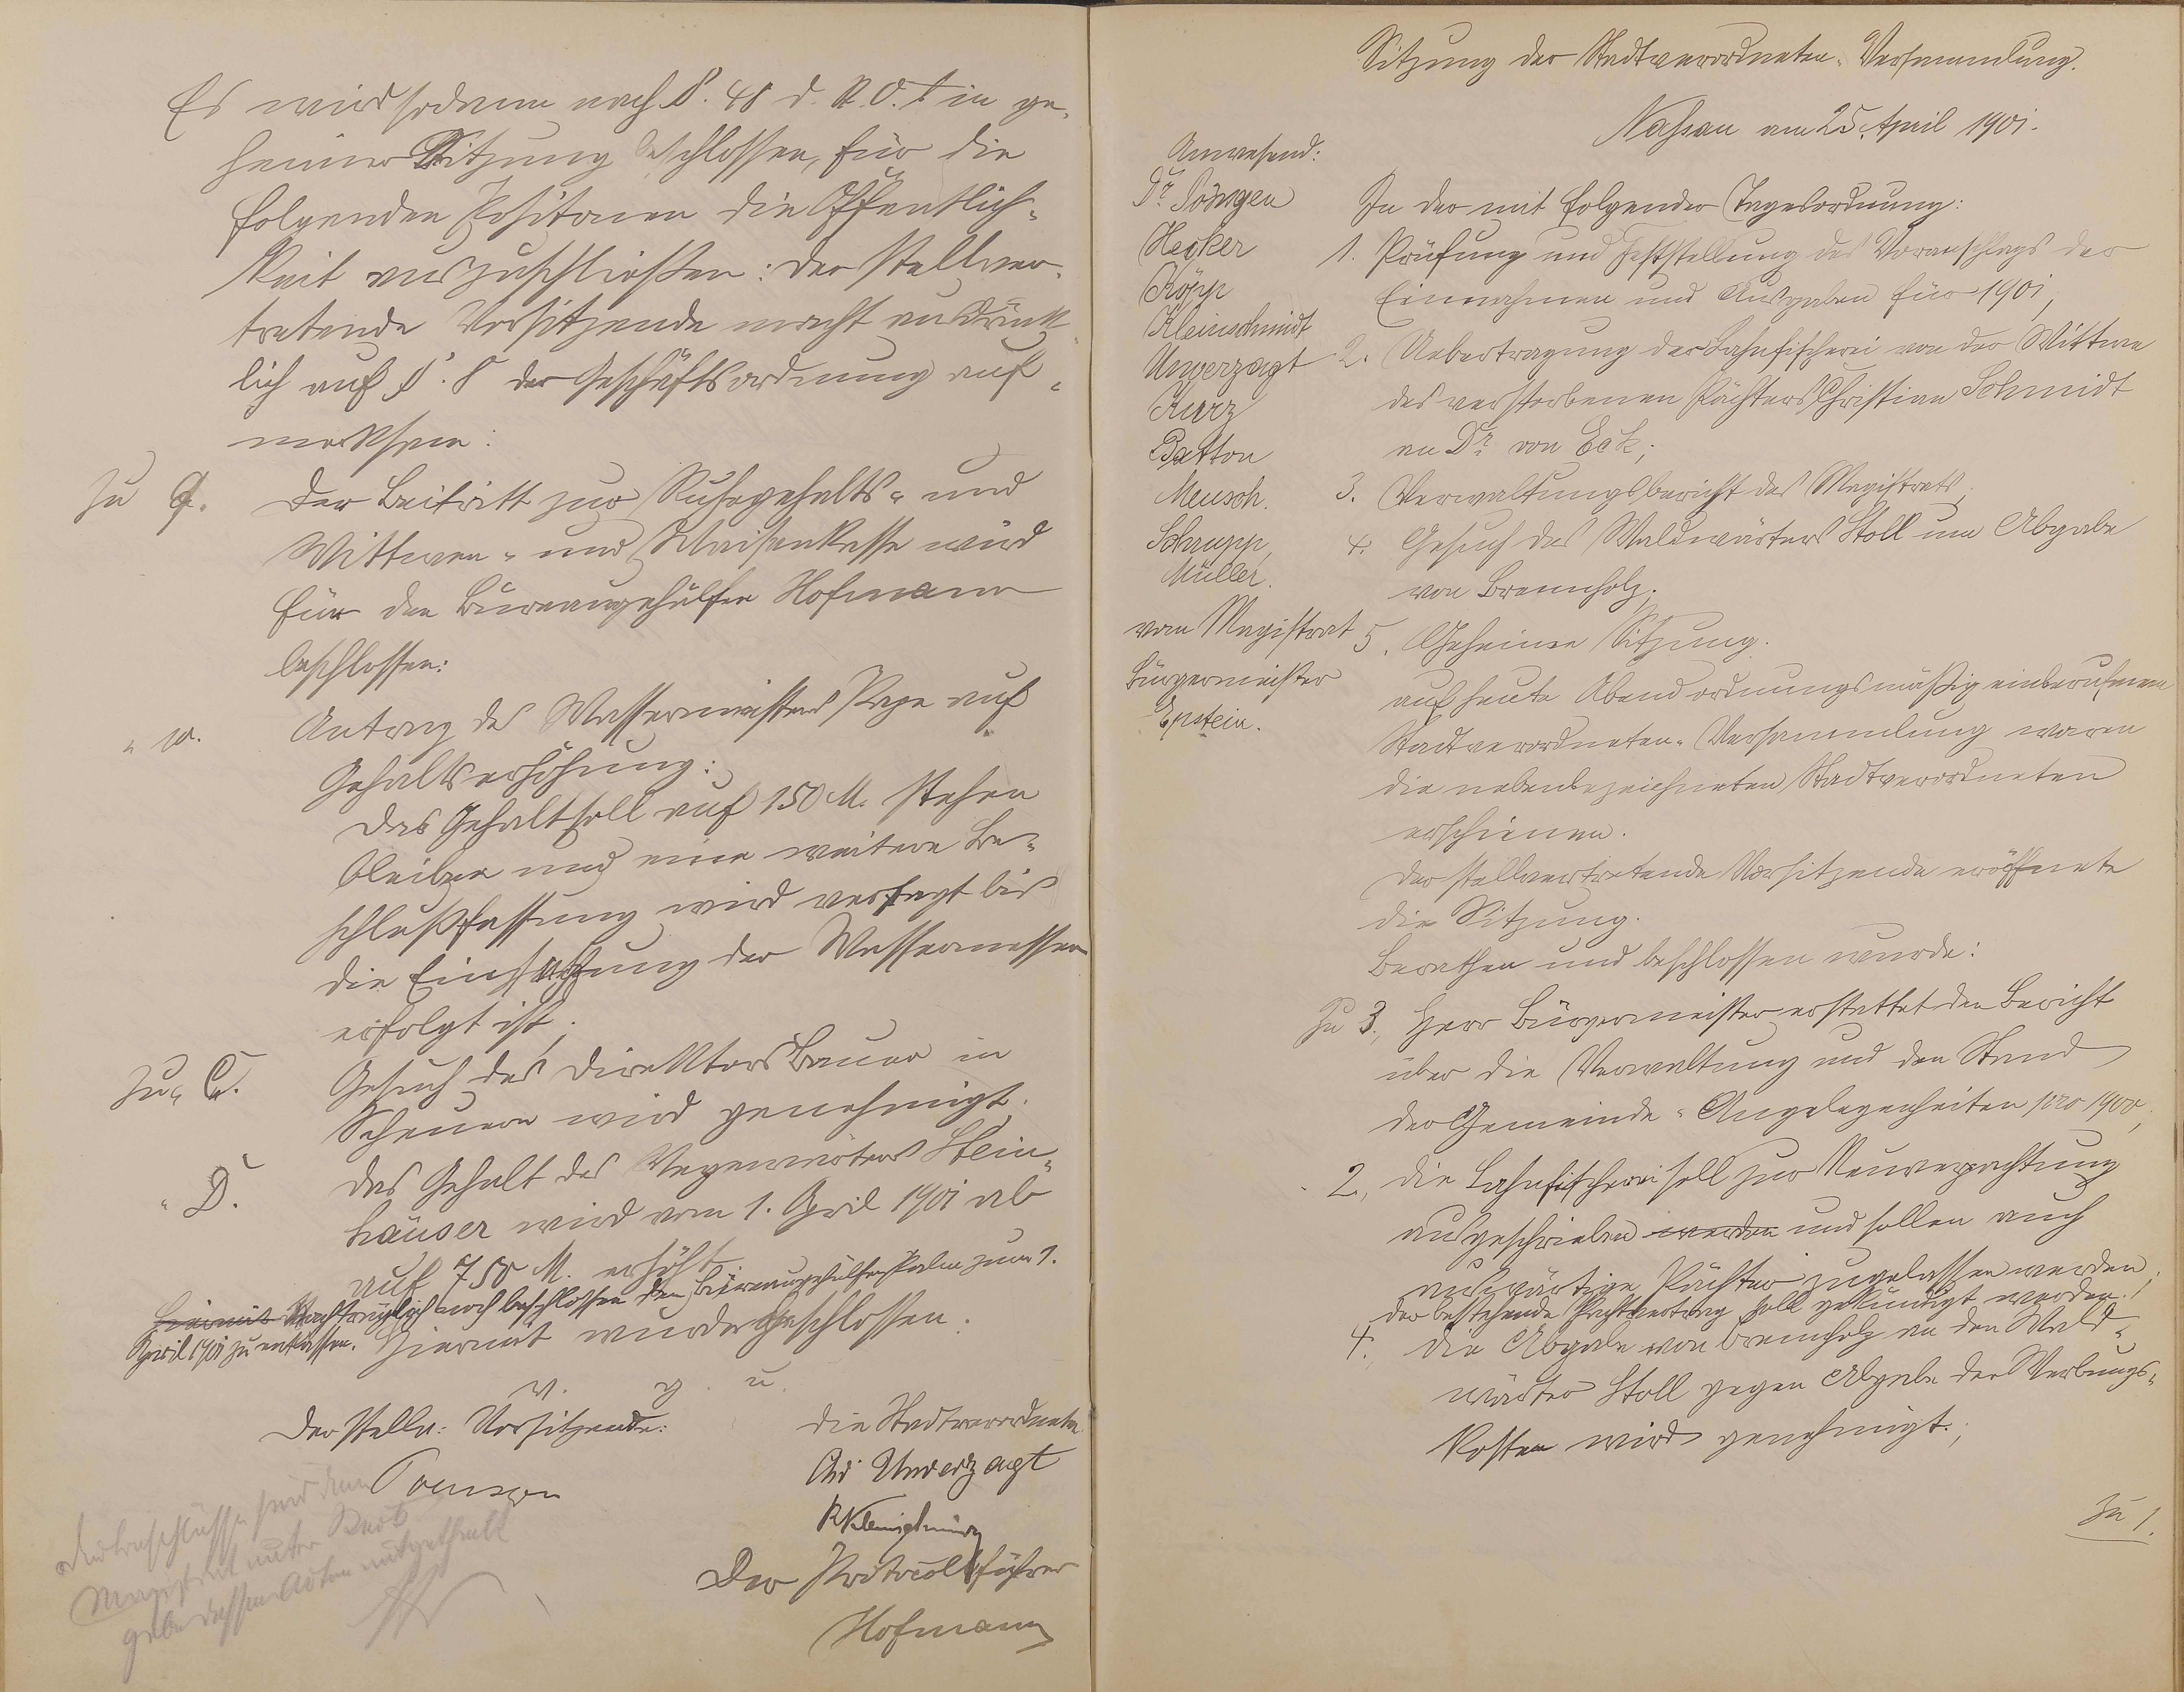 Es wird sodann nach §. 48 d. St. O. in ge-
heimer Sitzung beschlossen, für die
folgenden Positionen die Öffentlich-
keit auszuschließen: der stellver-
tretende Vorsitzende macht ausdrück-
lich auf §. 8 der Geschäftsordnung auf-
merksam:
zu 9. Der Beitritt zur Ruhegehalts- und
Wittwen- und Waisenkasse wird
für den Bureaugehülfen Hofmann
beschlossen:
" 10. Antrag des Wassermeisters Pape auf
Gehaltserhöhung:
Das Gehalt soll auf 150 M. stehen
bleiben und eine weitere Be-
schlußfassung wird vertagt bis
die Einführung der Wassermesser
erfolgt ist.
zu C. Gesuch des Direktors Bauer in
Scheuern wird genehmigt.
" D. Das Gehalt des Wegewärters Stein-
häuser wird vom 1. April 1901 ab
auf 750 M. erhöht.
Hiermit Nachträglich noch beschlossen den Bureaugehülfen Palm zum 1.
April 1901 zu entlassen. Hiermit wurde geschlossen.
v. g. u.
Der stellv. Vorsitzende: Die Stadtverordneten
Ad. Unverzagt
R Kleinschmidt
Der Protocollführer
Hofmann
Die Beschlüsse sind dem
Magistrat unter
dessen Akten mitgetheilt
Sitzung der Stadtverordneten-Versammlung.
Nassau am 25. April 1901.
Anwesend:
Hecker
Köpp
Kleinschmidt
Unverzagt
Kurz
Batton
Meusch.
Schrupp,
Müller.
vom Magistrat
Bürgermeister
Epstein.
In der mit folgender Tagesordnung:
1. Prüfung und Feststellung des Voranschlags der
Einnahmen und Ausgaben für 1901,
2. Uebertragung der Lahnfischerei von der Wittwe
des verstorbenen Pächters Christian Schmidt
an Dr. von Eck;
3. Verwaltungsbericht des Magistrats,
4. Gesuch des Waldwärters Stoll um Abgabe
von Brennholz;
5. Geheime Sitzung.
auf heute Abend ordnungsmäßig einberufenen
Stadtverordneten-Versammlung waren
die nebenbezeichneten Stadtverordneten
erschienen.
Der stellvertretende Vorsitzende eröffnete
die Sitzung.
Berathen und beschlossen wurde:
Zu 3. Herr Bürgermeister erstattet den Bericht
über die Verwaltung und den Stand
der Gemeinde-Angelegenheiten pro 1900,
" 2. Die Lahnfischerei soll zur Neuverpachtung
ausgeschrieben werden und sollen auch
auswärtige Pächter zugelassen werden,
der bestehende Pachtvertrag soll gekündigt werden.
4. Die Abgabe von Brennholz an den Wald-
wärter Stoll gegen Abgabe der Werbungs-
kosten wird genehmigt.,
Zu 1.